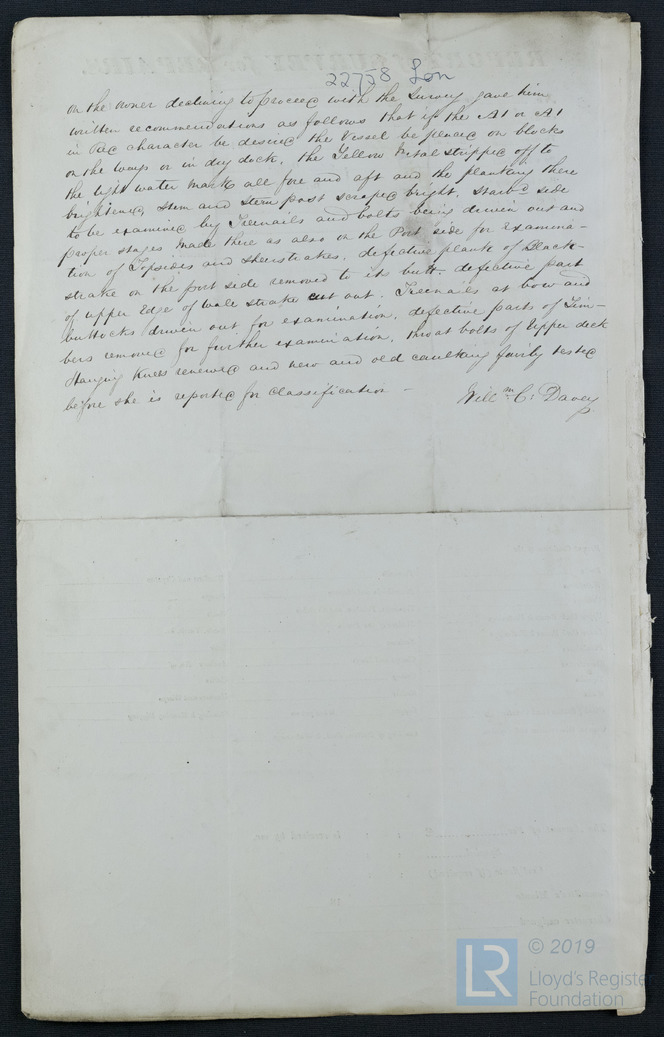 22758 Lon
on the owner declining to proceed with the Survey gave him
written recommendations as follows that if the A1 or A1
in Red character be desired the Vessel be placed on blocks
on the ways or in dry dock, the Yellow Metal stripped off to
the light water mark all fore and aft and the planking there
brightened, Stem and Stern post scraped bright, Starbd side
to be examined by Treenails and bolts being driven out and
proper stages made there as also on the Port side for examina-
tion of Topsides and sheerstrakes, defective plank of Black-
strake on the port side removed to its butt, defective part
of upper Edge of wale strake cut out. Treenails at bow and
buttocks driven out for examination, defective parts of Tim-
bers removed for further examination, throat bolts of Upper deck
Hanging Knees renewed and new and old caulking fairly tested
before she is reported for classification –
Willm C: Davey
© 2019
Lloyd's Register
Foundation
LR